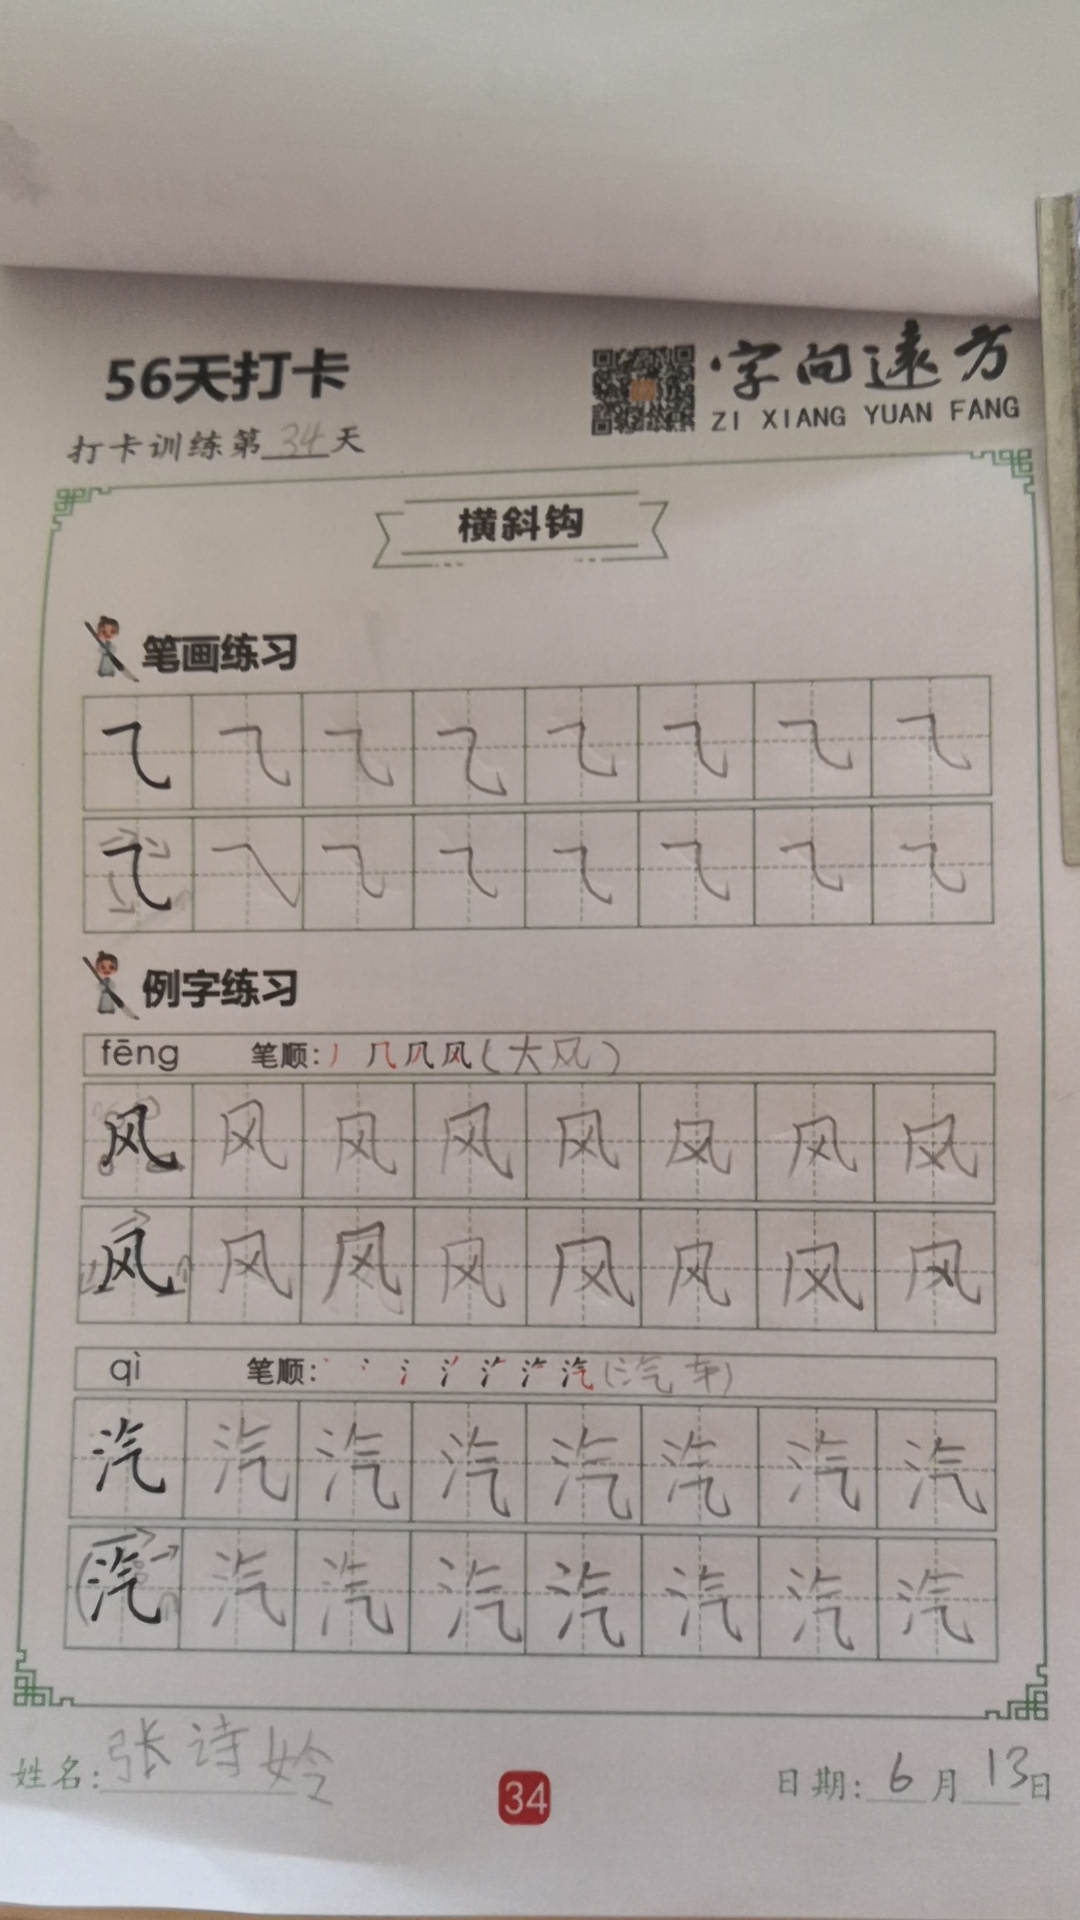 56天打卡
字向远方
ZI XIANG YUAN FANG
打卡训练第34天
横斜钩
笔画练习
⺄ ⺄ ⺄ ⺄ ⺄ ⺄ ⺄ ⺄
⺄ ⺄ ⺄ ⺄ ⺄ ⺄ ⺄ ⺄
例字练习
fēng 笔顺: 丿 几 风(大风)
风 风 风 风 风 风 风 风
风 风 风 风 风 风 风 风
qì 笔顺: 汽(汽车)
汽 汽 汽 汽 汽 汽 汽 汽
汽 汽 汽 汽 汽 汽 汽 汽
姓名: 张诗姈
34
日期: 6月13日